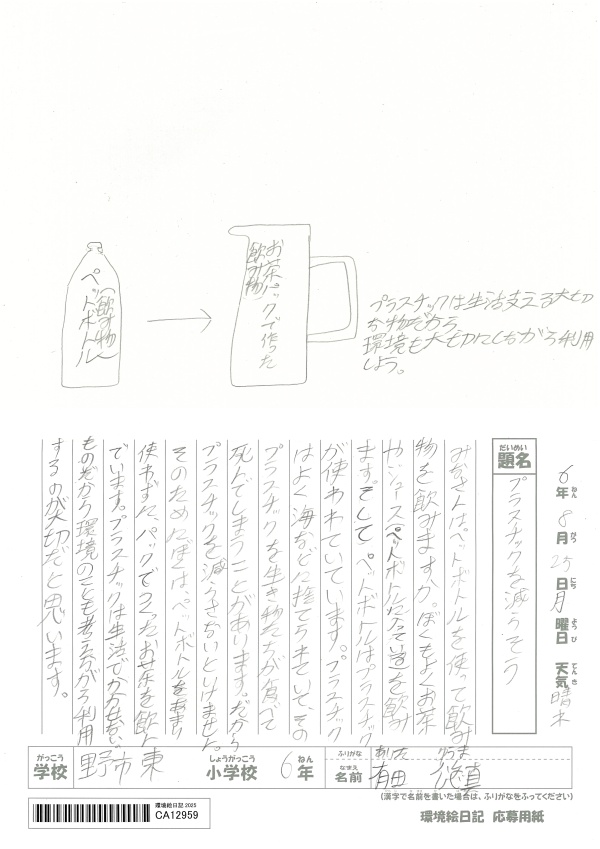 ペットボトル
(飲み物)
お茶パックで作った
飲み物
プラスチックは生活支える大切
な物だから
環境も大切にしながら利用
しよう。
6年 8月 25日 月曜日 天気 晴れ
ねん がつ にち ようび てんき
だいめい
題名
プラスチックを減らそう
みなさんはペットボトルを使って飲み
物を飲みますか。ぼくもよくお茶
やジュース(ペットボトルに入っている)を飲み
ます。そして、ペットボトルはプラスチック
が使われていています。プラスチック
はよく海などに捨てられていて、その
プラスチックを生き物たちが食べて
死んでしまうことがあります。だから
プラスチックを減らさないといけません。
そのためにぼくは、ペットボトルをあまり
使わずに、パックでつくったお茶を飲ん
でいます。プラスチックは生活でかかせない
ものだから環境のことも考えながら利用
するのが大切だと思います。
がっこう
学校
野市東
しょうがっこう
小学校
6年
ねん
ふりがな
ありた
なまえ
名前
有田
真
(漢字で名前を書いた場合は、ふりがなをふってください)
環境絵日記 2025
CA12959
環境絵日記 応募用紙